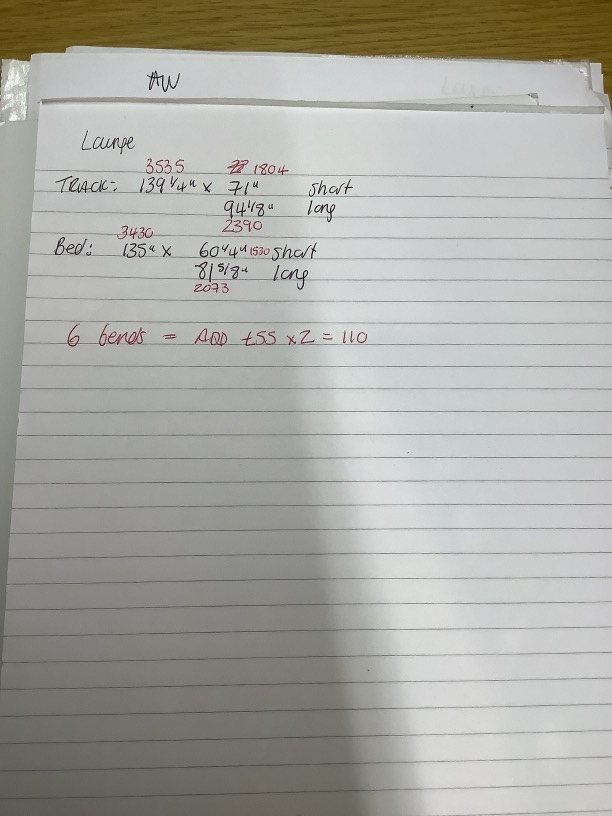 AW
Lounge
3535 1804
TRACK:- 139 1/4" x 71" short
94 1/8" long
2390
3430
Bed: 135" x 60 1/4" 1530 short
81 5/8" long
2073
6 bends = ADD +55 x 2 = 110